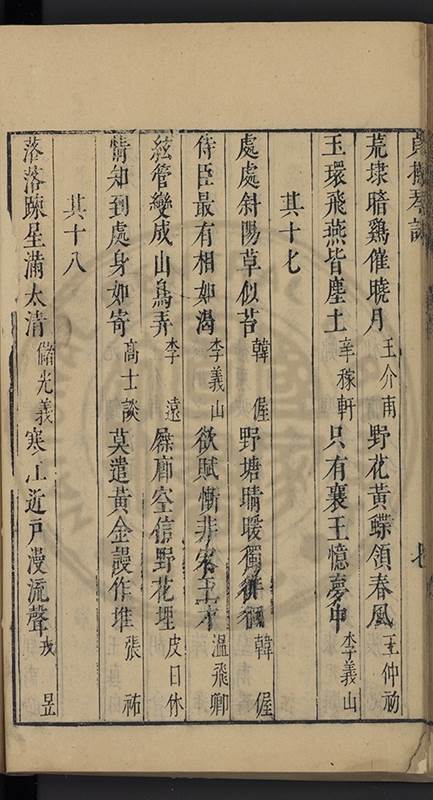 荒埭暗鷄催曉月王介甫野花黃蝶領春風王仲初
玉環飛燕皆塵土辛稼軒只有襄王憶夢中李義山
其十七
處處斜陽草似苔韓偓野塘晴暖獨徘徊韓偓
侍臣最有相如渴李義山欲賦慚非宋玉才溫飛卿
絃管變成山鳥弄李遠屧廊空信野花埋皮日休
情知到處身如寄高士談莫遣黃金謾作堆張祜
其十八
落落踈星滿太清儲光羲寒江近戶漫流聲戎昱